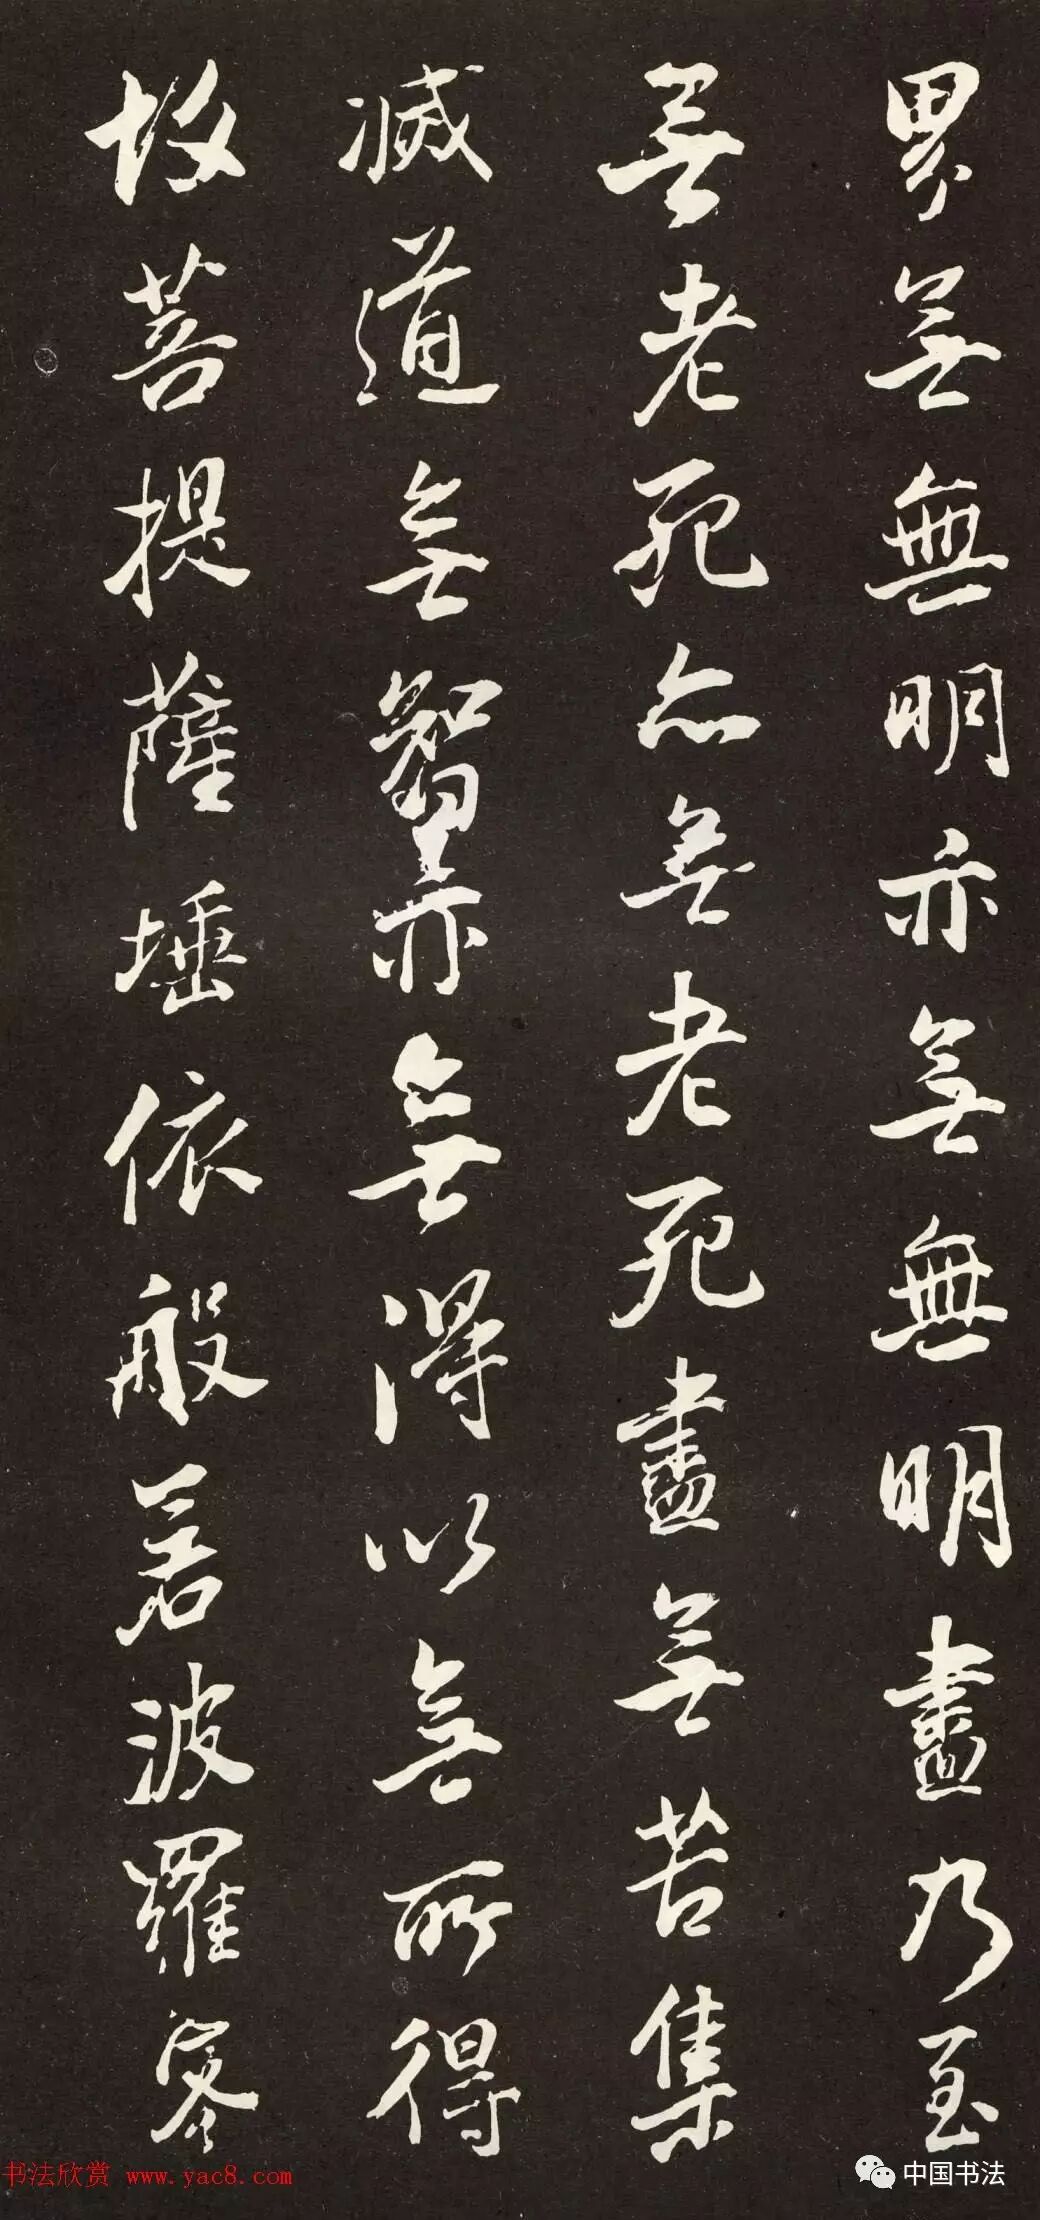 界無無明亦無無明盡乃至
無老死亦無老死盡無苦集
滅道無智亦無得以無所得
故菩提薩埵依般若波羅蜜
书法欣赏 www.yac8.com
中国书法